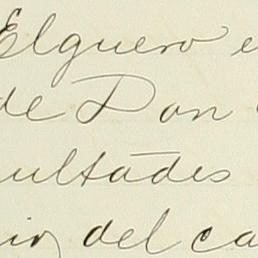 Elguero e
de Don
ultades
io, del ca